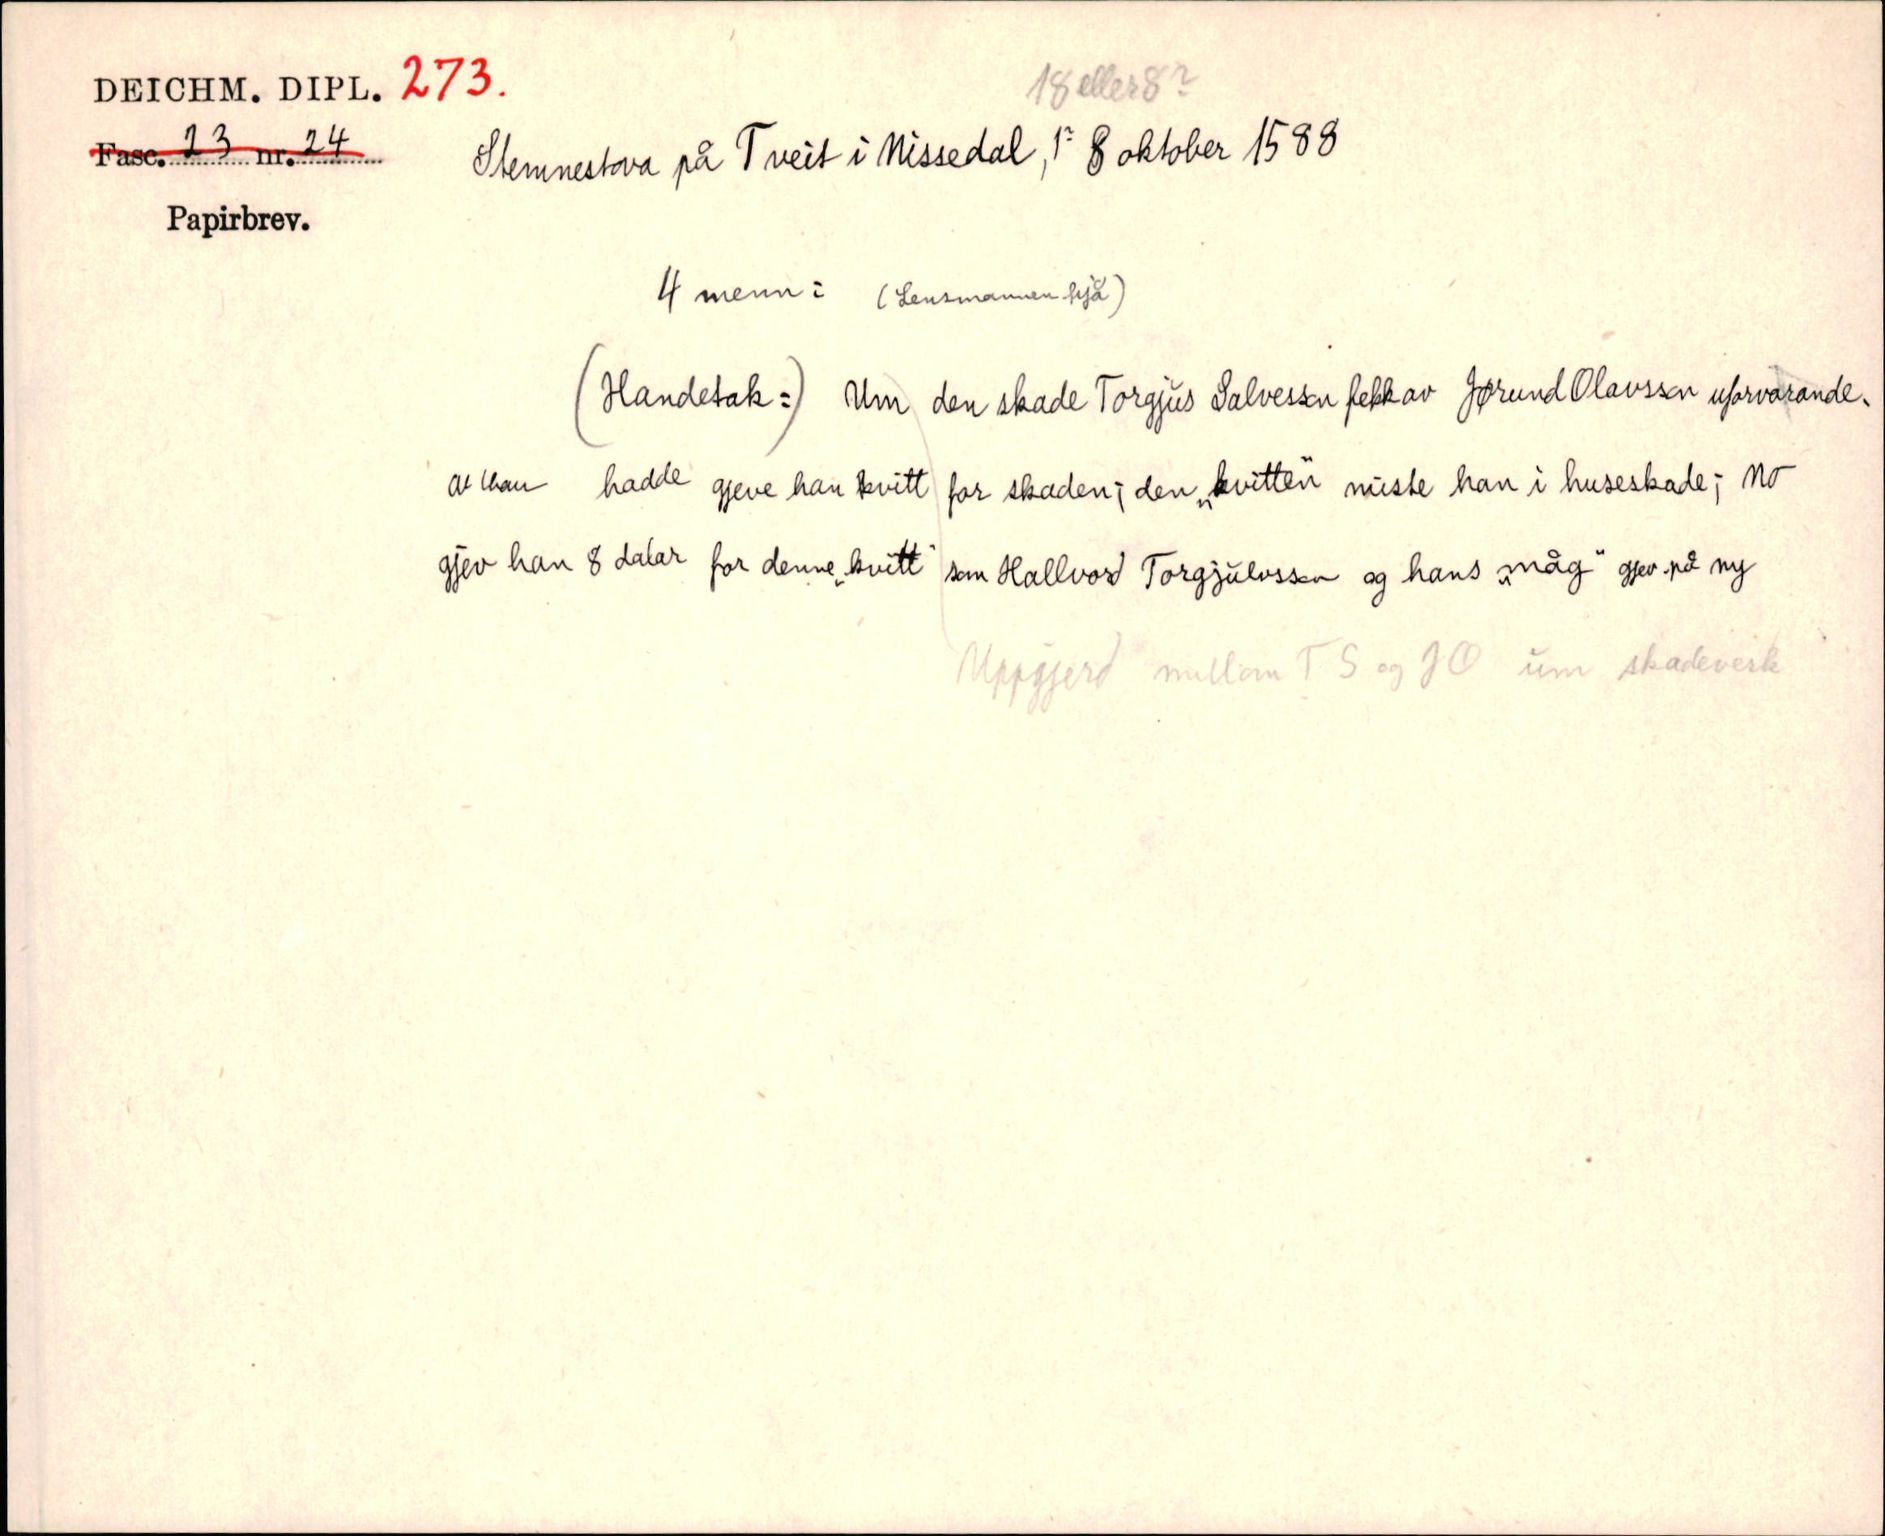 DEICHM. DIPL. 273.
18 eller 8?
Fasc. 23 nr. 24
Stemnestova på Tveit i Nissedal, 1? 8 oktober 1588
Papirbrev.
4 menn: (Lensmannen hjå)
(Handetak:) Um den skade Torgjus Salvesson fekk av Jørund Olavsson uforvarande.
hadde gjeve han kvitt for skaden; den „kvitten" miste han i huseskade; no
gjev han 8 dalar for denne „kvitt" som Hallvord Torgjulvsson og hans „måg" gjev på ny
Uppgjerd millom T S og J O um skadeverk